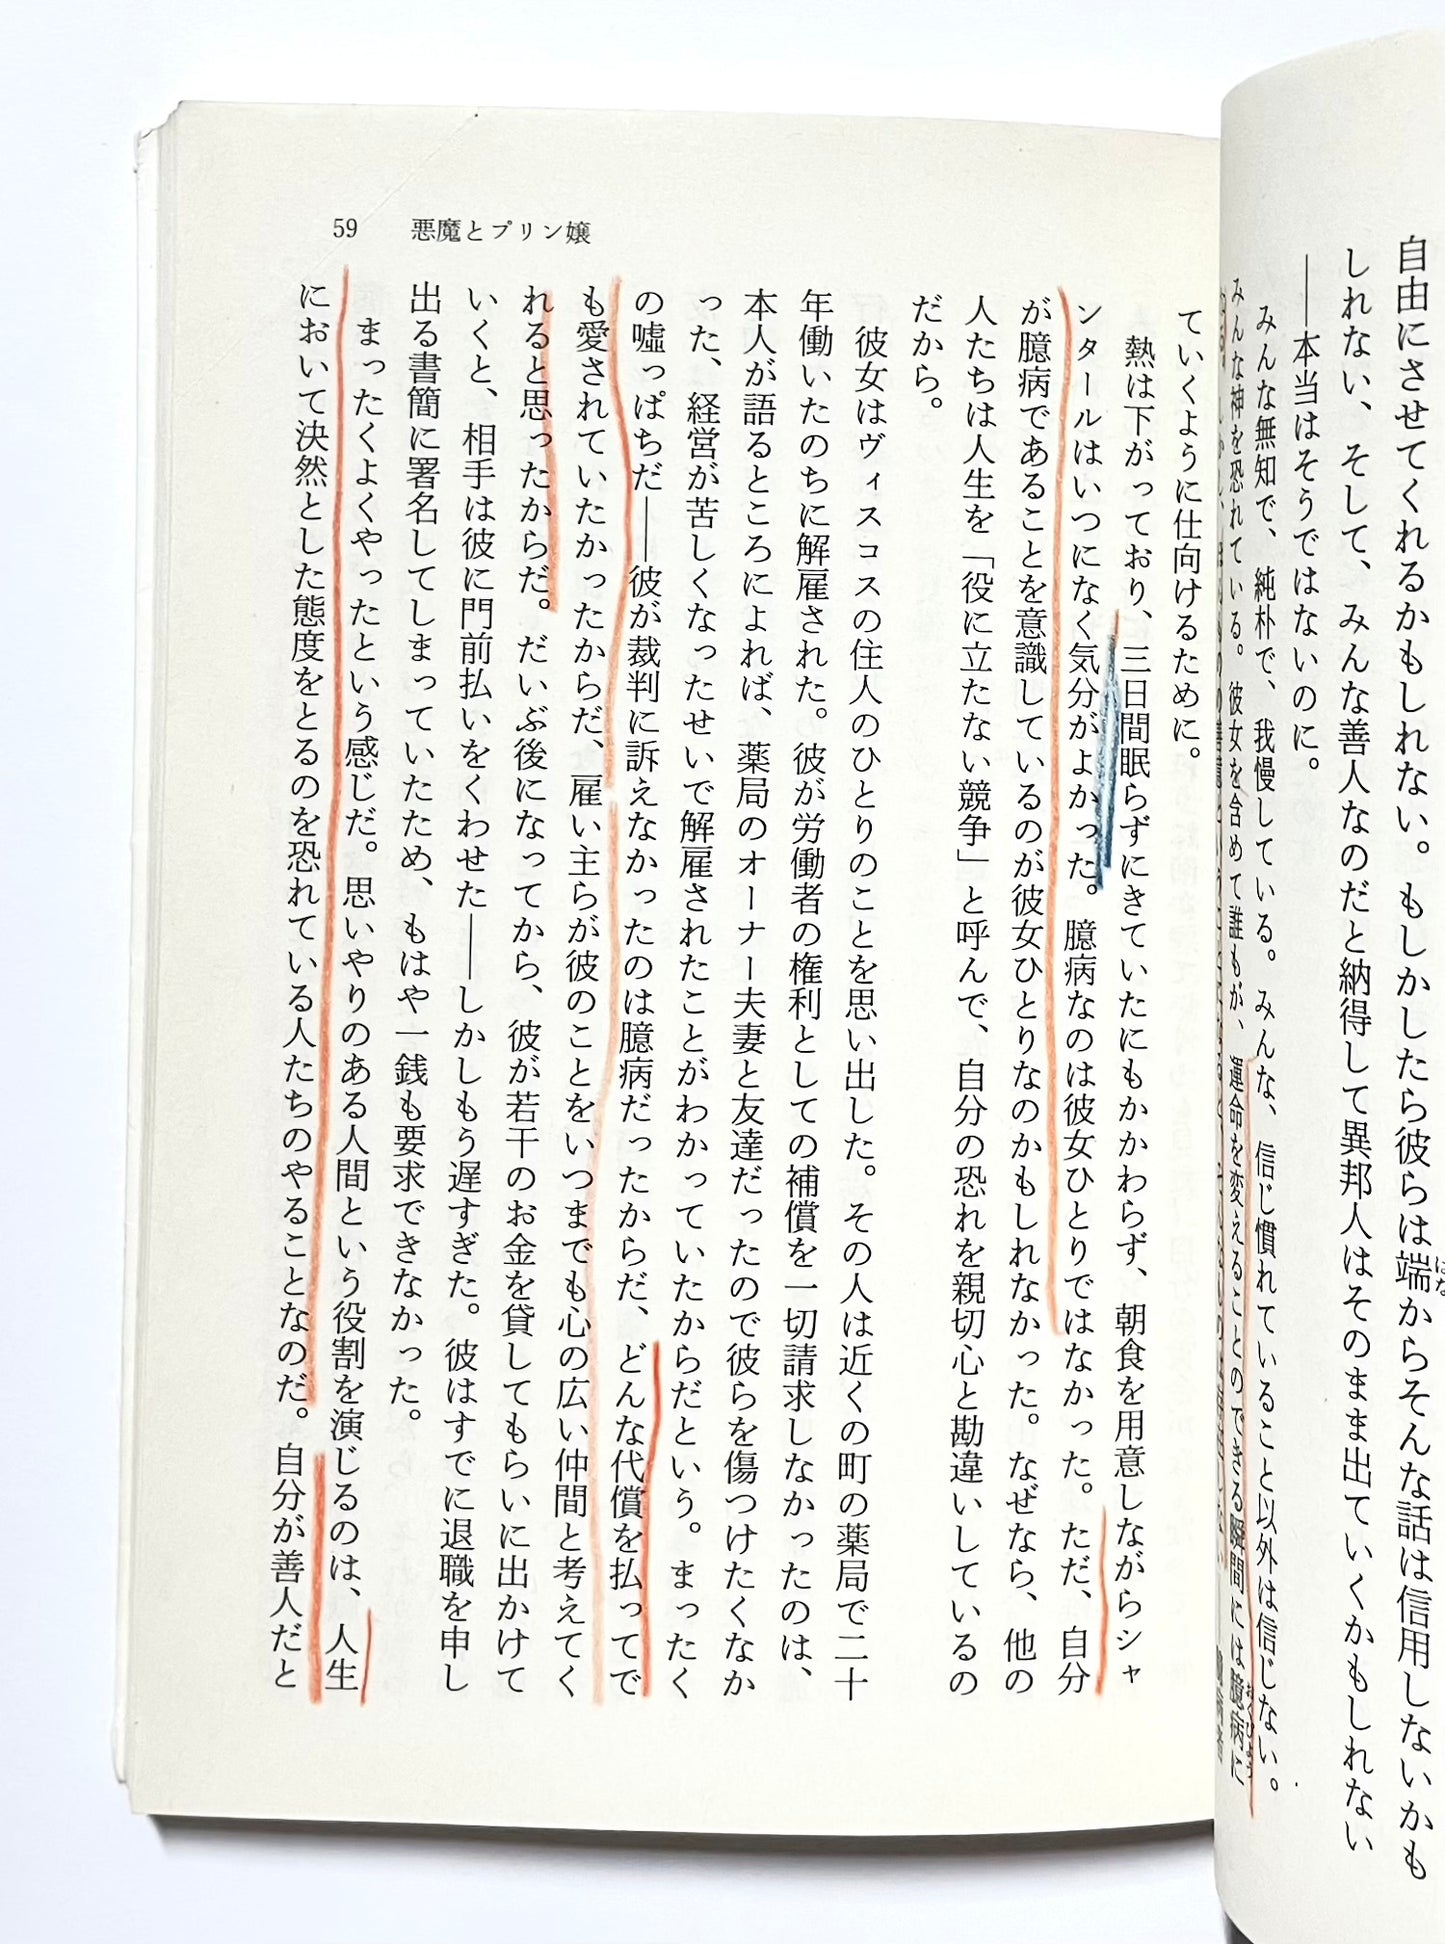 自由にさせてくれるかもしれない。もしかしたら彼らは端からそんな話は信用しないかも
はな
しれない、そして、みんな善人なのだと納得して異邦人はそのまま出ていくかもしれない
――本当はそうではないのに。
みんな無知で、純朴で、我慢している。みんな、信じ慣れていること以外は信じない。
みんな神を恐れている。彼女を含めて誰もが、運命を変えることのできる瞬間には臆病に
おくびょう
59 悪魔とプリン嬢
ていくように仕向けるために。
熱は下がっており、三日間眠らずにきていたにもかかわらず、朝食を用意しながらシャ
ンタールはいつになく気分がよかった。臆病なのは彼女ひとりではなかった。ただ、自分
が臆病であることを意識しているのが彼女ひとりなのかもしれなかった。なぜなら、他の
人たちは人生を「役に立たない競争」と呼んで、自分の恐れを親切心と勘違いしているの
だから。
彼女はヴィスコスの住人のひとりのことを思い出した。その人は近くの町の薬局で二十
年働いたのちに解雇された。彼が労働者の権利としての補償を一切請求しなかったのは、
本人が語るところによれば、薬局のオーナー夫妻と友達だったので彼らを傷つけたくなか
った、経営が苦しくなったせいで解雇されたことがわかっていたからだという。まったく
の嘘っぱちだ――彼が裁判に訴えなかったのは臆病だったからだ、どんな代償を払ってで
も愛されていたかったからだ、雇い主らが彼のことをいつまでも心の広い仲間と考えてく
れると思ったからだ。だいぶ後になってから、彼が若干のお金を貸してもらいに出かけて
いくと、相手は彼に門前払いをくわせた――しかしもう遅すぎた。彼はすでに退職を申し
出る書簡に署名してしまっていたため、もはや一銭も要求できなかった。
まったくよくやったという感じだ。思いやりのある人間という役割を演じるのは、人生
において決然とした態度をとるのを恐れている人たちのやることなのだ。自分が善人だと